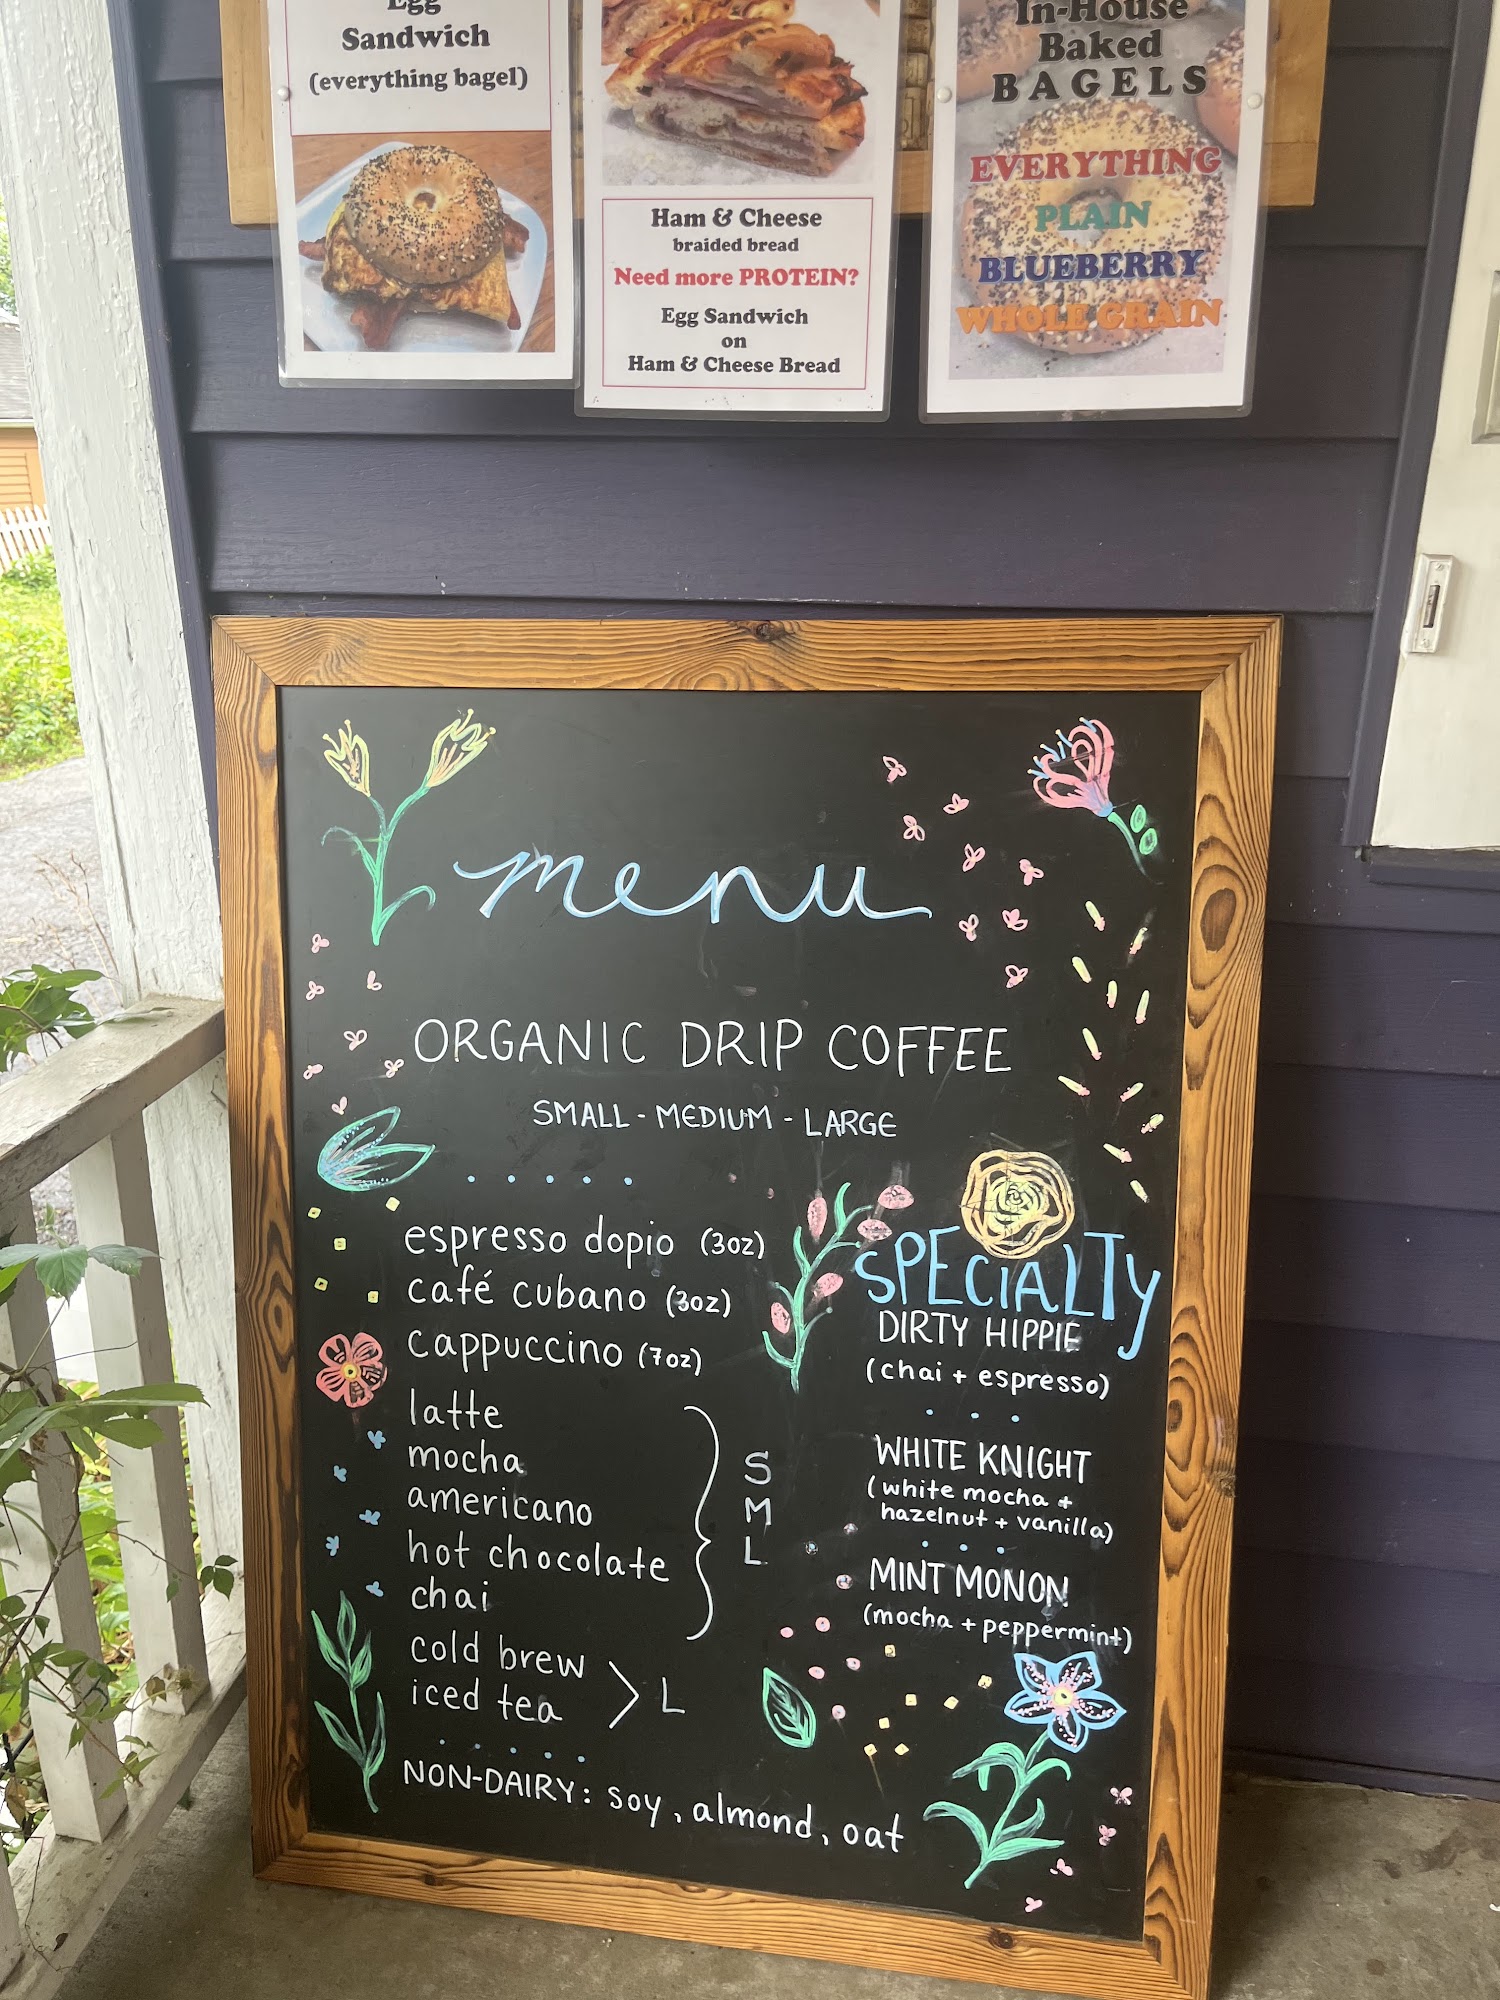 Egg
Sandwich
(everything bagel)
Ham & Cheese
braided bread
Need more PROTEIN?
Egg Sandwich
on
Ham & Cheese Bread
In-House
Baked
BAGELS
EVERYTHING
PLAIN
BLUEBERRY
WHOLE GRAIN
menu
ORGANIC DRIP COFFEE
SMALL - MEDIUM - LARGE
espresso dopio (3oz)
café cubano (3oz)
cappuccino (7oz)
latte
mocha
americano
hot chocolate
chai
S
M
L
cold brew
iced tea
L
NON-DAIRY: soy, almond, oat
SPECIALTY
DIRTY HIPPIE
(chai + espresso)
WHITE KNIGHT
(white mocha +
hazelnut + vanilla)
MINT MONON
(mocha + peppermint)